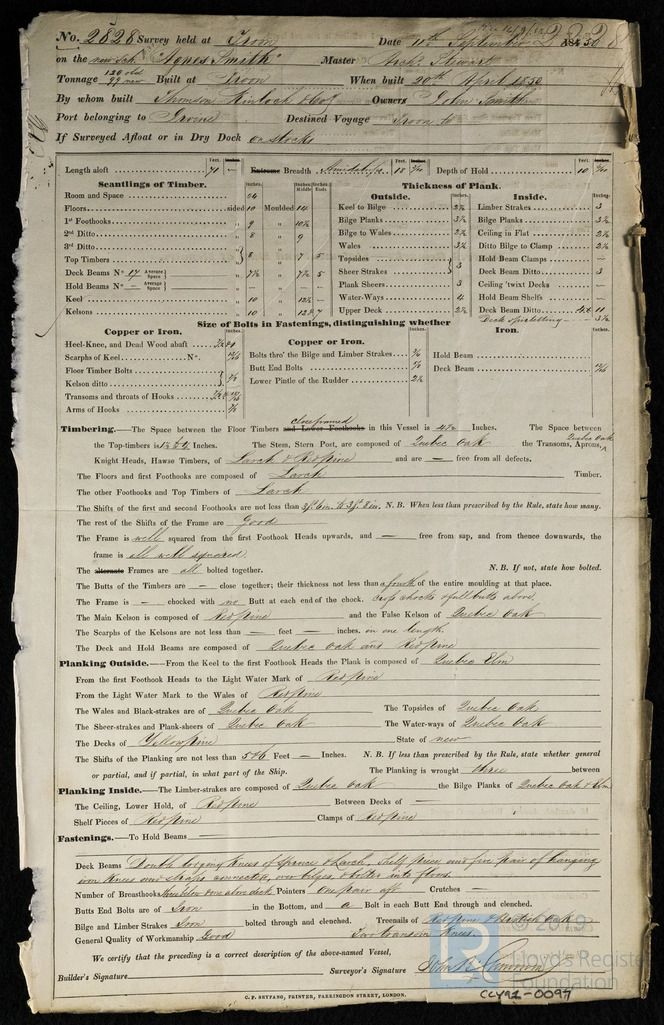 No. 2828 Survey held at Troon Date 11th September 1850
on the new Sch. "Agnes Smith" Master Arch. Stewart
Tonnage 120 old 99 new Built at Troon When built 20th April 1850
By whom built Thomson Kinloch & Co. Owners John Smith
Port belonging to Irvine Destined Voyage Troon to
If Surveyed Afloat or in Dry Dock on stocks
Feet. Inches. Feet. Inches. Feet. Inches.
Length aloft 71 — Extreme Breadth 18 Depth of Hold 10
Scantlings of Timber. Thickness of Plank.
Outside. Inside.
Room and Space 24
Keel to Bilge 2½ Limber Strakes 3
Floors sided 10 Moulded 14
Bilge Planks 3½ Bilge Planks 3½
1st Foothooks 9 10½
Bilge to Wales 2½ Ceiling in Flat 2½
2nd Ditto 8 9
Wales 3½ Ditto Bilge to Clamp 2½
3rd Ditto
Topsides Hold Beam Clamps —
Top Timbers 8 7 5
Sheer Strakes 3 Deck Beam Ditto 3
Deck Beams No. 17 Average Space 7½ 7½ 5
Plank Sheers 3 Ceiling 'twixt Decks —
Hold Beams No. — Average Space — — —
Water-Ways 4 Hold Beam Shelfs —
Keel 10 12½ —
Upper Deck 2½ Deck Beam Ditto 11
Kelsons 10
Deck Spirketting — 3½
Size of Bolts in Fastenings, distinguishing whether
Copper or Iron. Copper or Iron. Iron.
Heel-Knee, and Dead Wood abaft
Bolts thro' the Bilge and Limber Strakes
Hold Beam —
Scarphs of Keel No.
Butt End Bolts
Deck Beam
Floor Timber Bolts
Lower Pintle of the Rudder 2¼
Kelson ditto
Transoms and throats of Hooks
Arms of Hooks
Timbering.—The Space between the Floor Timbers and Lower Foothooks close framed in this Vessel is 4½ Inches. The Space between
the Top-timbers is Inches. The Stem, Stern Post, are composed of Quebec Oak the Transoms, Aprons, Quebec Oak
Knight Heads, Hawse Timbers, of Larch & Red pine and are — free from all defects.
The Floors and first Foothooks are composed of Larch Timber.
The other Foothooks and Top Timbers of Larch
The Shifts of the first and second Foothooks are not less than 3ft. 6in. to 3ft. 8in. N. B. When less than prescribed by the Rule, state how many.
The rest of the Shifts of the Frame are Good
The Frame is well squared from the first Foothook Heads upwards, and — free from sap, and from thence downwards, the
frame is all well squared.
The alternate Frames are all bolted together. N. B. If not, state how bolted.
The Butts of the Timbers are — close together; their thickness not less than a fourth of the entire moulding at that place.
The Frame is — chocked with no Butt at each end of the chock. Crop chocks & full butts above.
The Main Kelson is composed of Red pine and the False Kelson of Quebec Oak
The Scarphs of the Kelsons are not less than — feet — inches. on one length.
The Deck and Hold Beams are composed of Quebec Oak and Red pine
Planking Outside.—From the Keel to the first Foothook Heads the Plank is composed of Quebec Elm
From the first Foothook Heads to the Light Water Mark of Red pine
From the Light Water Mark to the Wales of Red pine
The Wales and Black-strakes are of Quebec Oak The Topsides of Quebec Oak
The Sheer-strakes and Plank-sheers of Quebec Oak The Water-ways of Quebec Oak
The Decks of Yellow pine State of new
The Shifts of the Planking are not less than 5 ft 6 Feet — Inches. N. B. If less than prescribed by the Rule, state whether general
or partial, and if partial, in what part of the Ship. The Planking is wrought three between
Planking Inside.—The Limber-strakes are composed of Quebec Oak the Bilge Planks of Quebec Oak & Elm
The Ceiling, Lower Hold, of Red pine Between Decks of —
Shelf Pieces of Red pine Clamps of Red pine
Fastenings.—To Hold Beams
Deck Beams Double lodging knees of Spruce & Larch, Shelf piece and five pair of hanging
iron Knees and straps connected, over bilges, & bolted into floors.
Number of Breasthooks three below & one above deck Pointers One pair aft Crutches —
Butts End Bolts are of Iron in the Bottom, and a Bolt in each Butt End through and clenched.
Bilge and Limber Strakes Iron bolted through and clenched. Treenails of Red pine & British Oak
General Quality of Workmanship Good Two transom Knees.
We certify that the preceding is a correct description of the above-named Vessel,
Builder's Signature Surveyor's Signature
C. F. SEYFANG, PRINTER, FARRINGDON STREET, LONDON.
© 2019
Lloyd's Register
Foundation
CCY92-0097